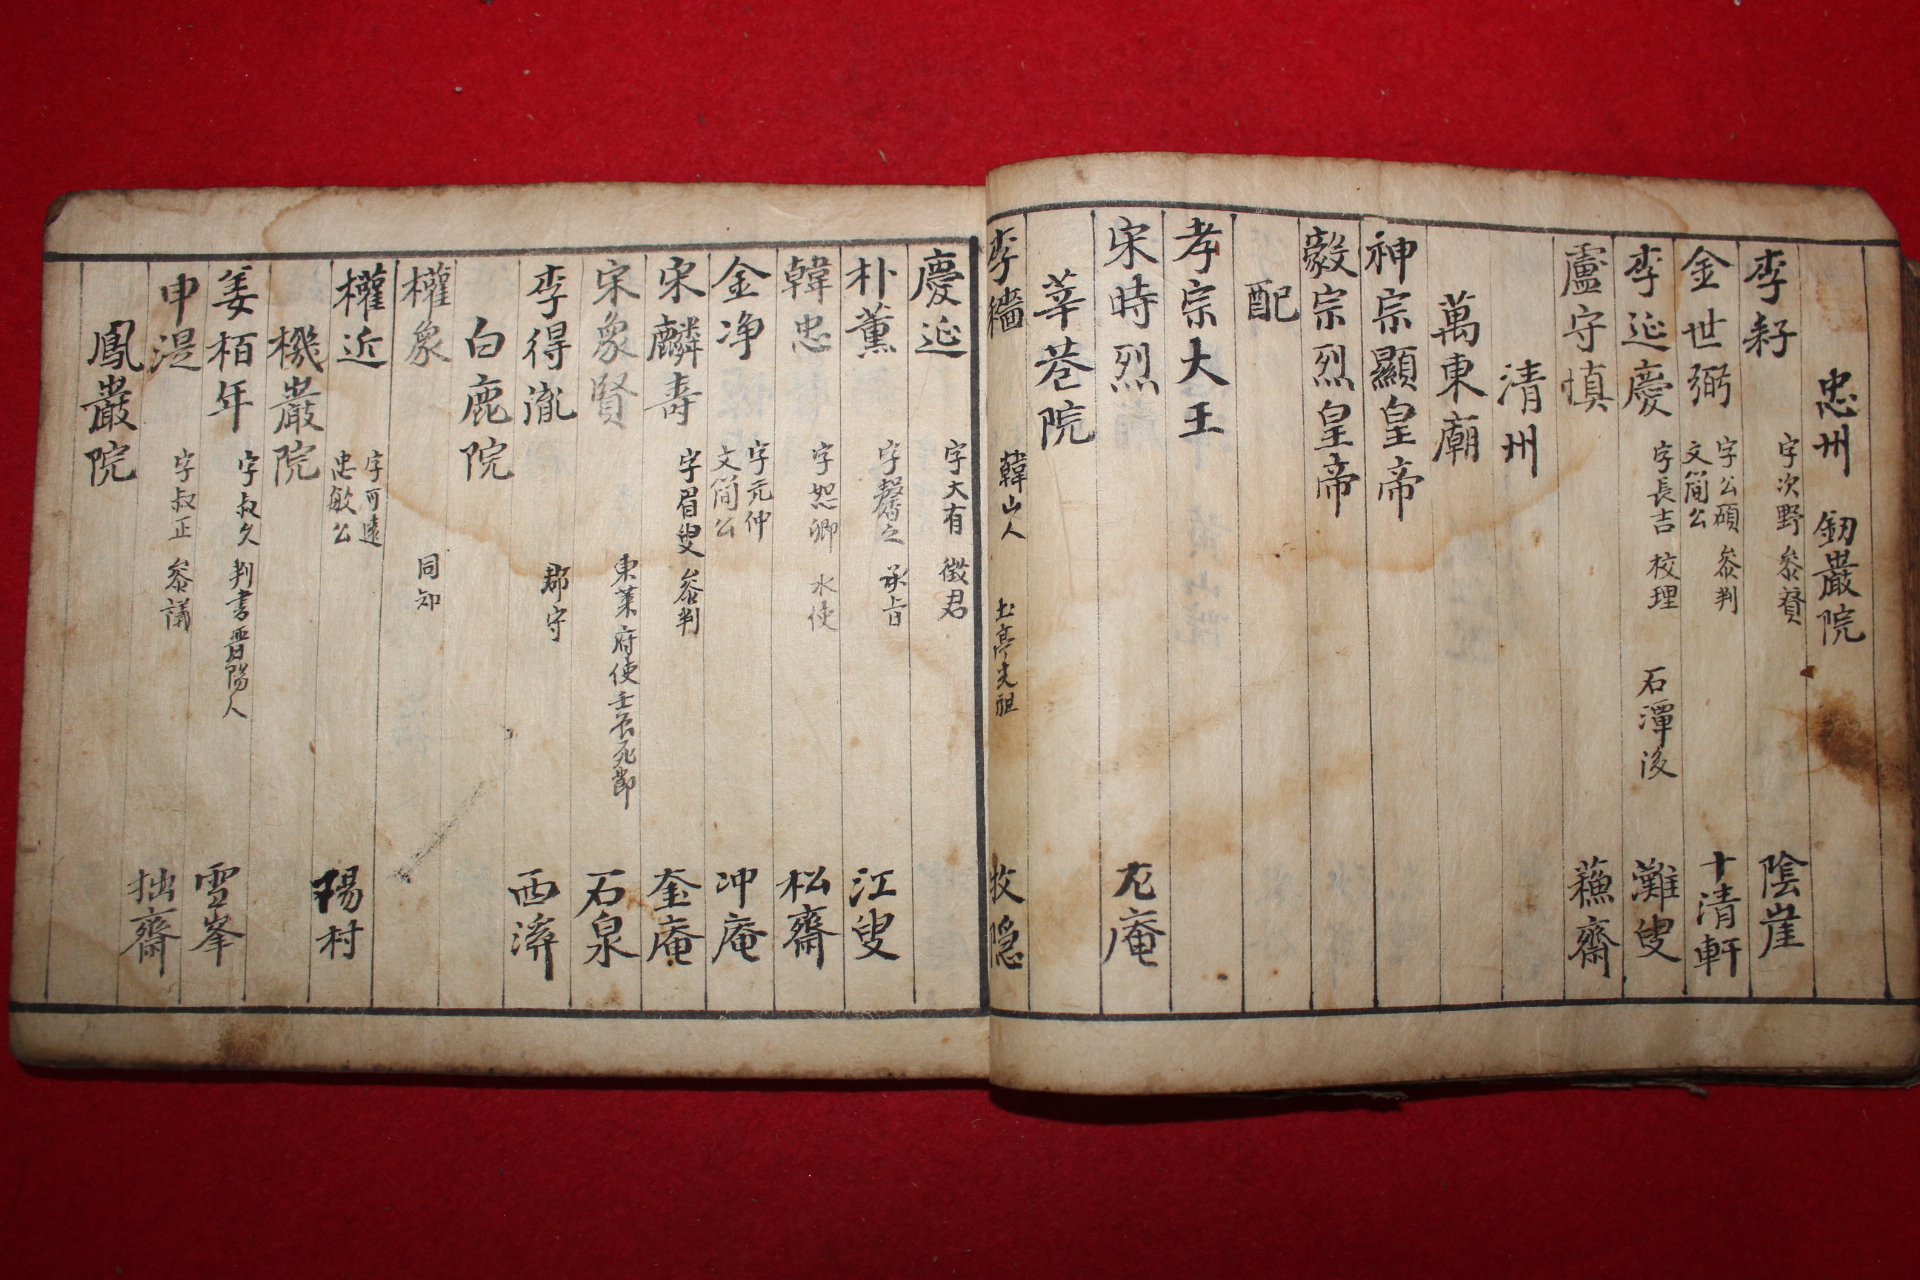 忠州 釰巖院
李耔 字次野 叅賛 陰崖
金世弼 字公碩 文簡公 叅判 十清軒
李延慶 字長吉 校理 石潭後 灘叟
盧守慎 蘓齋
清州
萬東廟
神宗顯皇帝
毅宗烈皇帝
配
孝宗大王
宋時烈 尤庵
莘巷院
李穡 韓山人 土亭先祖 牧隠
慶延 字大有 徵君
朴薰 字馨之 承旨 江叟
韓忠 字恕卿 水使 松齋
金净 字元仲 文簡公 冲庵
宋麟壽 字眉叟 叅判 奎庵
宋象賢 東萊府使壬辰死節 石泉
李得胤 郡守 西溪
白鹿院
權象 同知
權近 字可遠 忠敏公 陽村
機巖院
姜栢年 字叔久 判書晋陽人 雪峯
申湜 字叔正 叅議 拙齋
鳳巖院